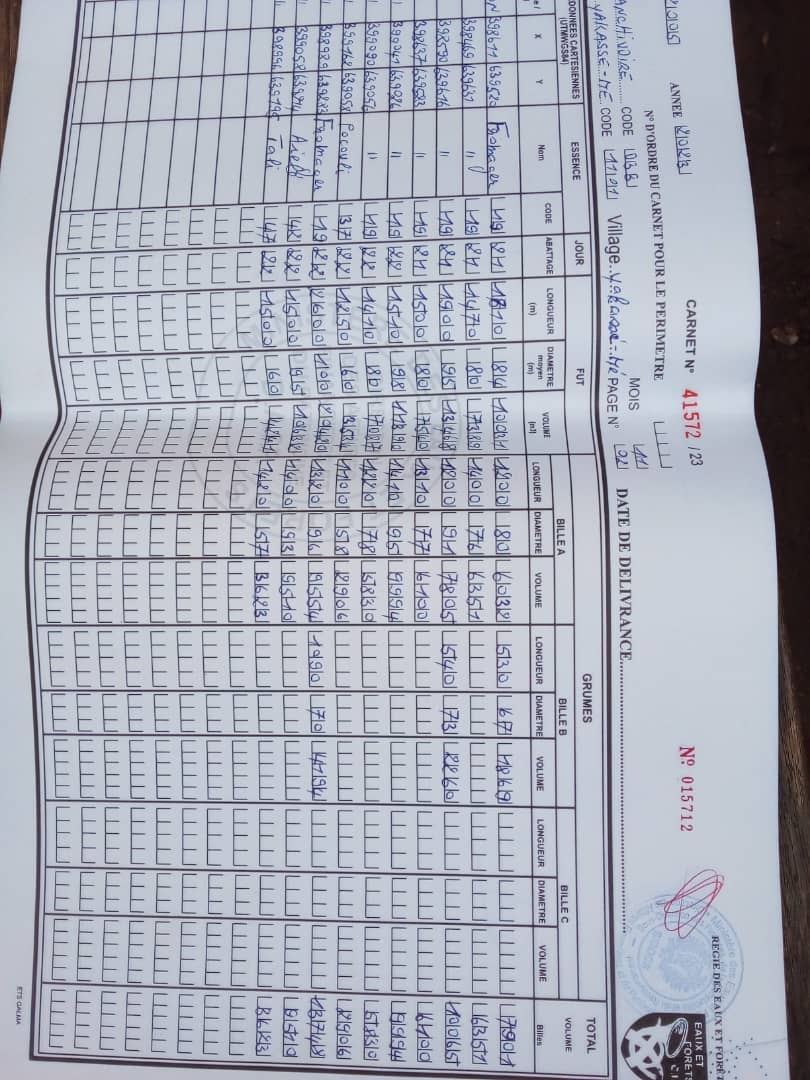 REGIE DES EAUX ET FORÊT
EAUX ET
FORETS
C.I
CARNET N° 41572 /23
N° 015712
ANNEE 2023
N° D'ORDRE DU CARNET POUR LE PERIMETRE
ANCHIVOIRE CODE DBB MOIS 11
YAKASSE-ME CODE Village Yakassé-Mé PAGE N° 02 DATE DE DELIVRANCE
DONNEES CARTESIENNES ESSENCE JOUR FUT GRUMES TOTAL
(UTMWGS84) BILLE A BILLE B BILLE C VOLUME
X Y Nom CODE ABATTAGE LONGUEUR (m) DIAMETRE moyen (m) VOLUME (m3) LONGUEUR DIAMETRE VOLUME LONGUEUR DIAMETRE VOLUME LONGUEUR DIAMETRE VOLUME Billes
398611 639520 Fromager 19 21 1810 84 10031 1200 80 6032 530 67 1869 7901
398469 639631 " 19 21 1470 80 7389 1400 76 6351 6351
398590 639616 " 19 21 1900 95 13468 1200 91 7805 540 73 2260 10065
398637 639583 " 19 21 1500 80 7540 1310 77 6100 6100
399041 639926 " 19 22 1510 98 1410 95 9994 9994
399090 639056 " 19 22 1410 80 7087 1220 78 5830 5830
399162 639058 37 22 1250 60 1100 58 2906 2906
398989 Fromager 19 22 2600 100 20420 1320 96 9554 1090 70 4194 13748
399058 42 22 1500 95 10632 1400 93 9510 9510
398996 639795 Tali 47 22 1500 60 4241 1420 57 3623 3623
ETS GALMA